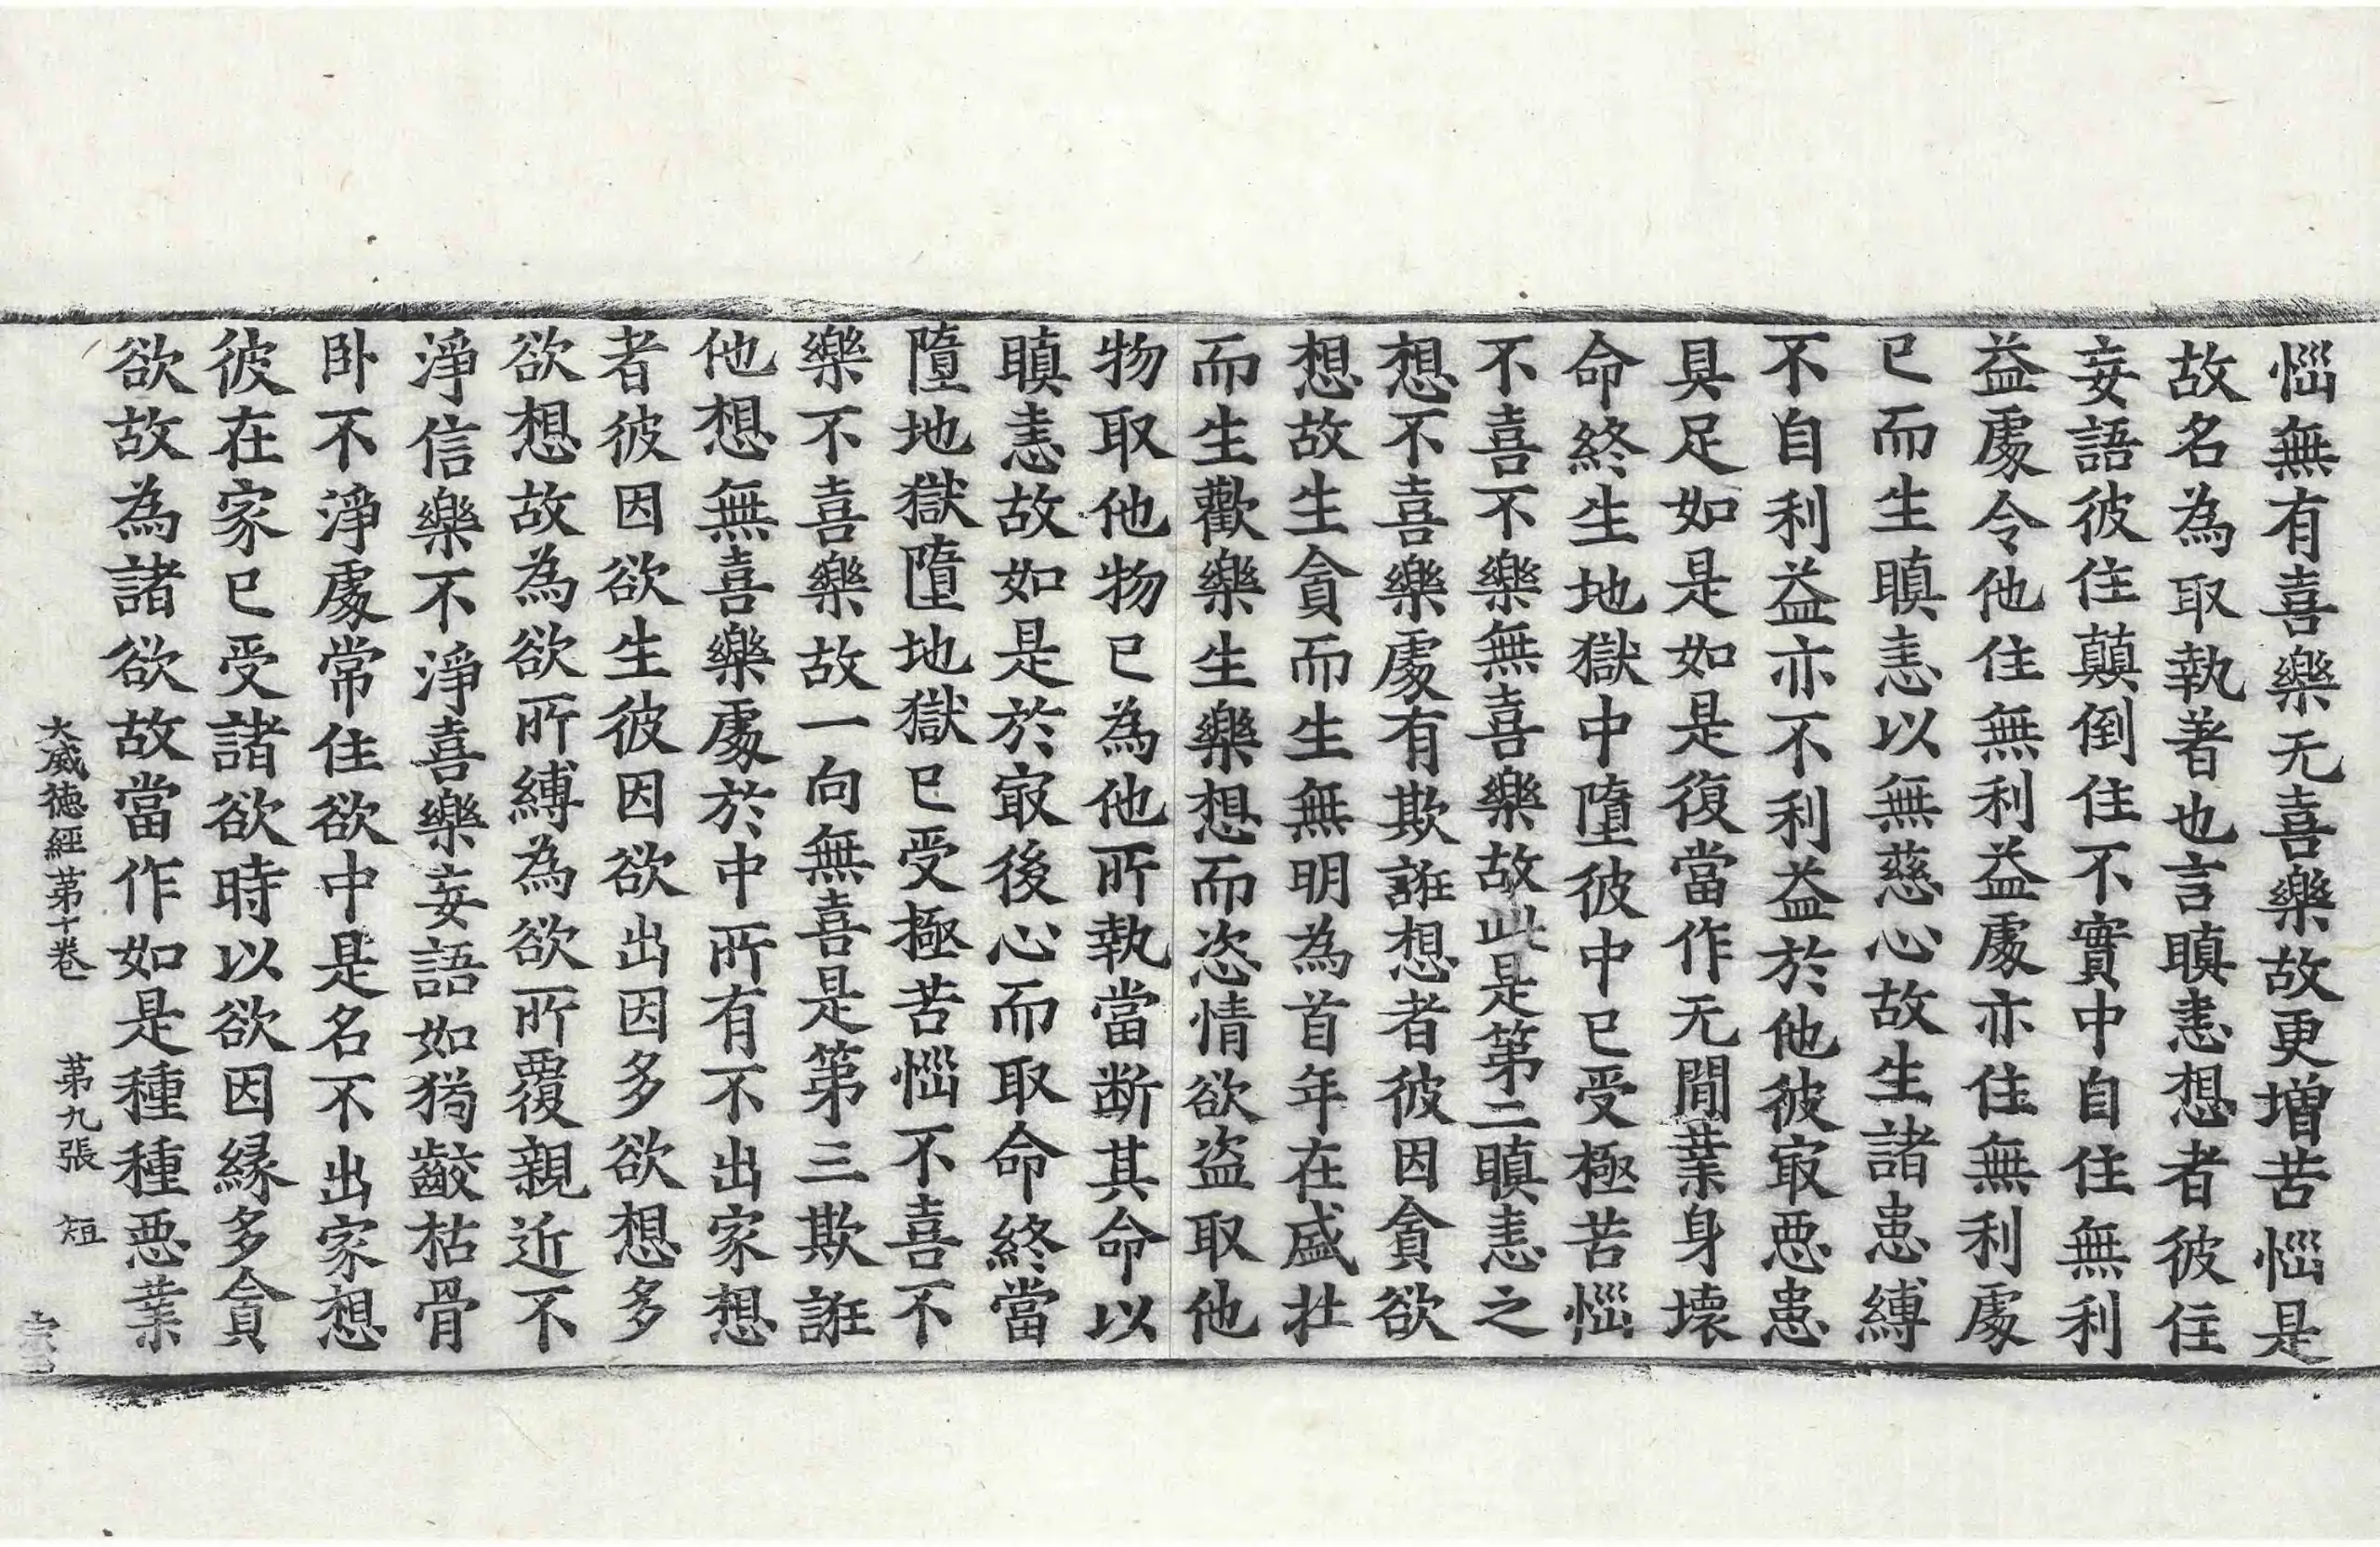 惱無有喜樂无喜樂故更增苦惱是
故名為取執著也言瞋恚想者彼住
妄語彼住顛倒住不實中自住無利
益處令他住無利益處亦住無利處
已而生瞋恚以無慈心故生諸患縛
不自利益亦不利益於他彼㝡惡患
具足如是如是復當作无間業身壞
命終生地獄中墮彼中已受極苦惱
不喜不樂無喜樂故此是第二瞋恚之
想不喜樂處有欺誑想者彼因貪欲
想故生貪而生無明為首年在盛壯
而生歡樂生樂想而恣情欲盜取他
物取他物已為他所執當斷其命以
瞋恚故如是於㝡後心而取命終當
墮地獄墮地獄已受極苦惱不喜不
樂不喜樂故一向無喜是第三欺誑
他想無喜樂處於中所有不出家想
者彼因欲生彼因欲出因多欲想多
欲想故為欲所縛為欲所覆親近不
淨信樂不淨喜樂妄語如猗齩枯骨
臥不淨處常住欲中是名不出家想
彼在家已受諸欲時以欲因緣多貪
欲故為諸欲故當作如是種種惡業
大威德經第十卷　第九張　短